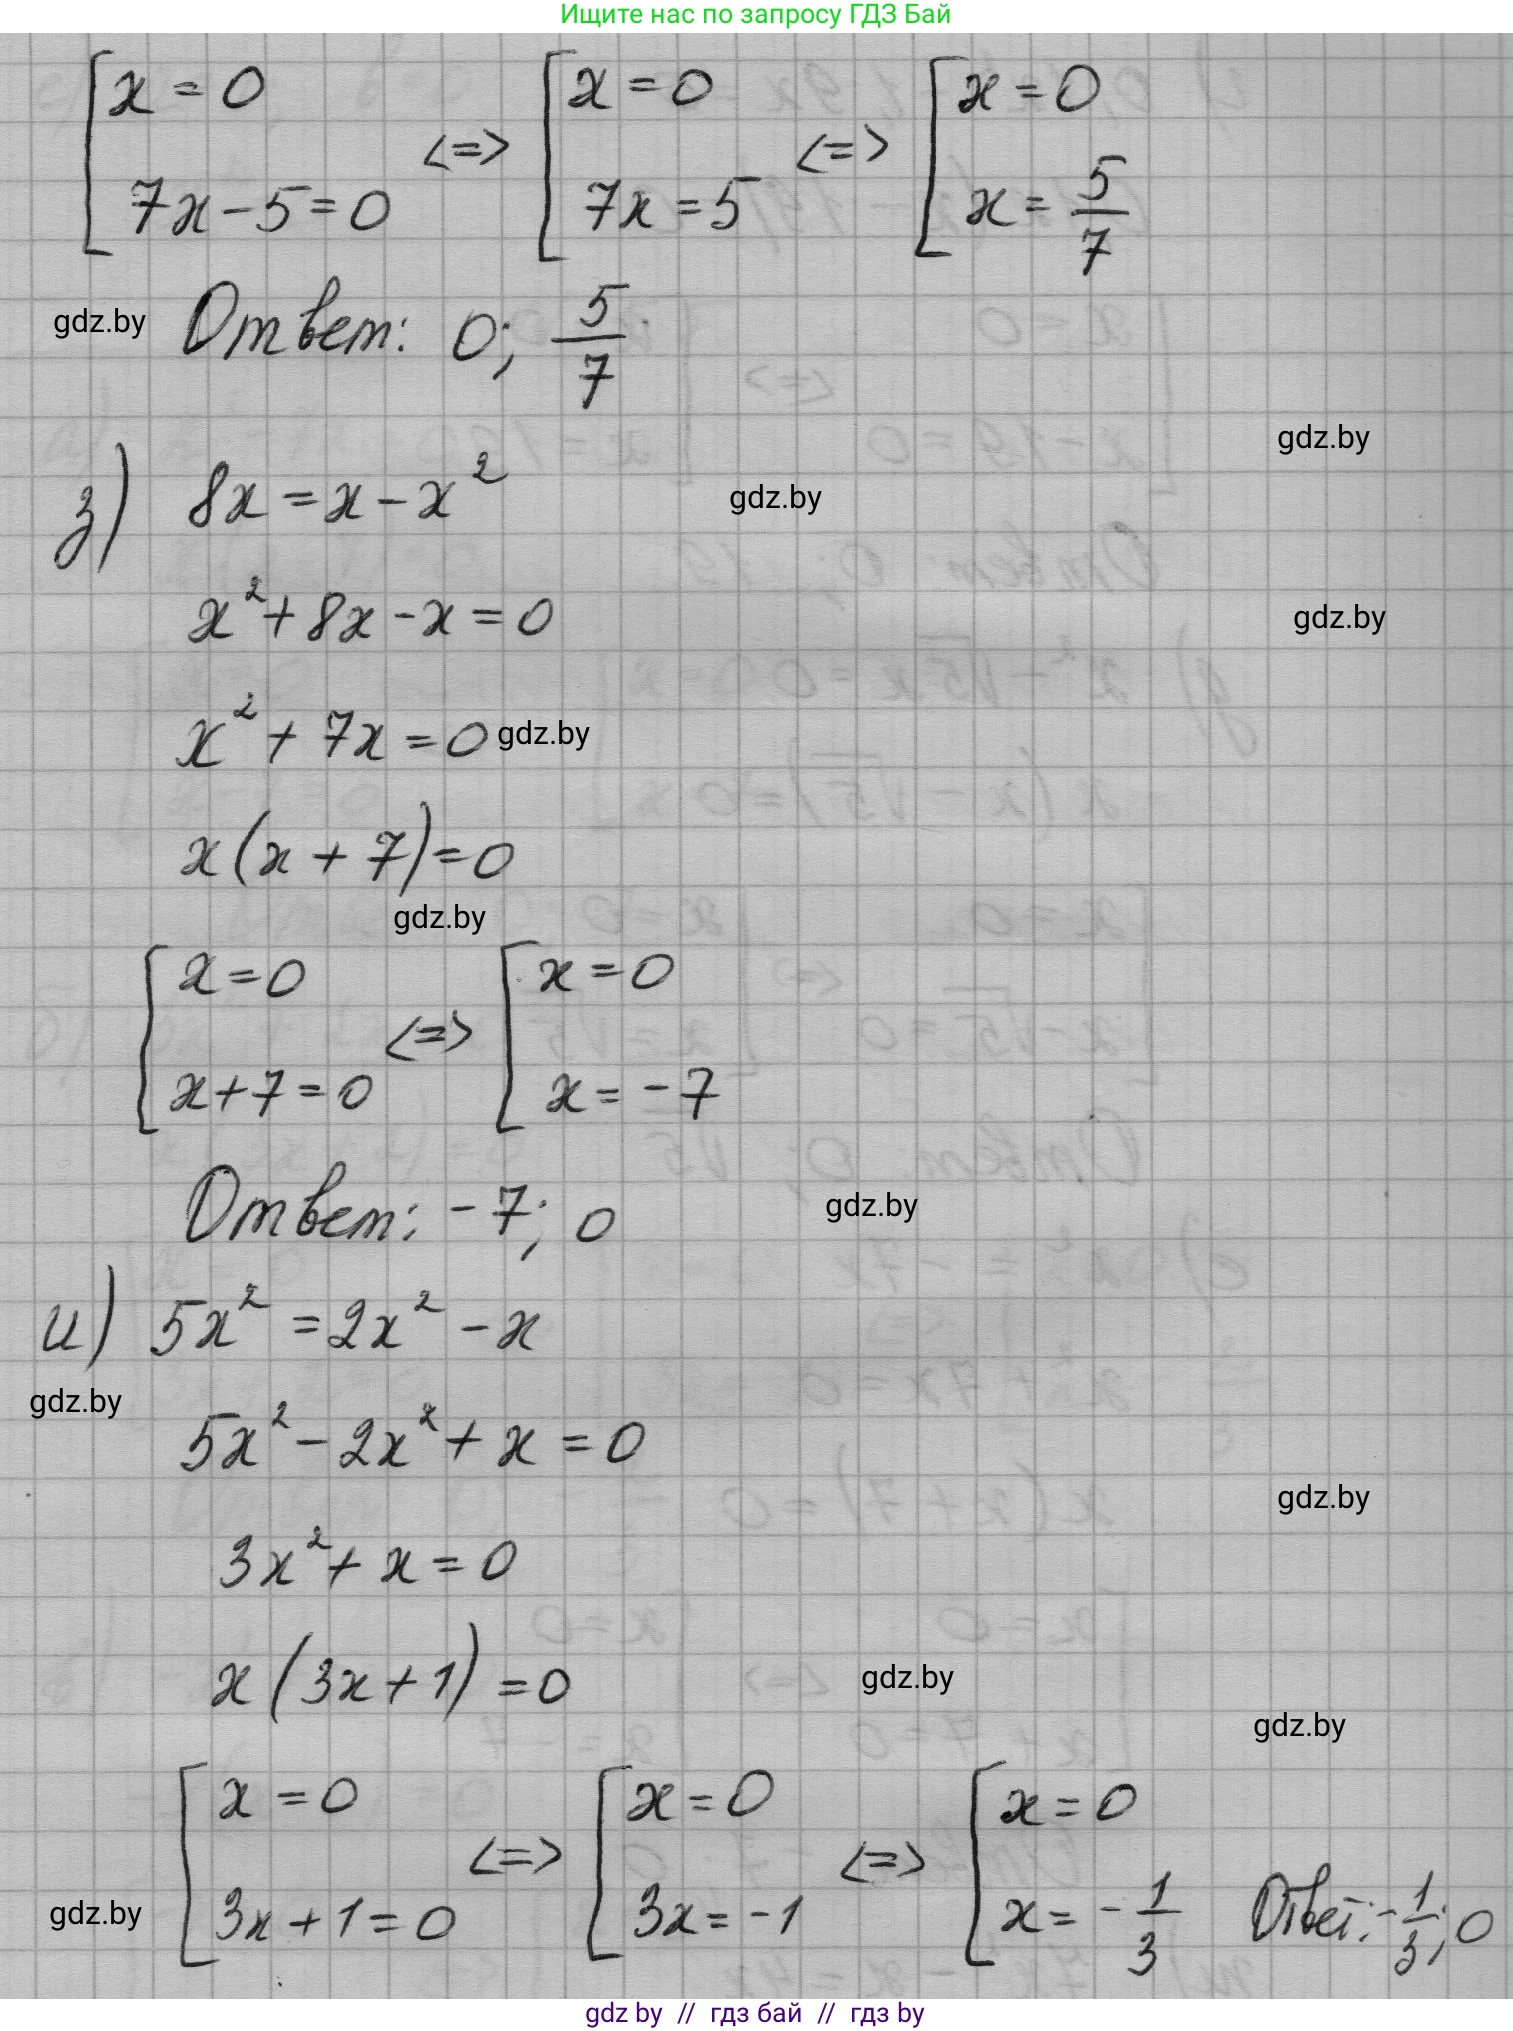 Ищите нас по запросу ГДЗ Бай
[x = 0 <=> [x = 0 <=> [x = 0
[7x - 5 = 0 [7x = 5 [x = 5/7
gdz.by Ответ: 0; 5/7
gdz.by
з) 8x = x - x² gdz.by
x² + 8x - x = 0 gdz.by
x² + 7x = 0 gdz.by
x(x + 7) = 0
gdz.by
[x = 0 <=> [x = 0
[x + 7 = 0 [x = -7
Ответ: -7; 0 gdz.by
и) 5x² = 2x² - x
gdz.by
5x² - 2x² + x = 0
gdz.by
3x² + x = 0
x(3x + 1) = 0 gdz.by
gdz.by
[x = 0 <=> [x = 0 <=> [x = 0
gdz.by [3x + 1 = 0 [3x = -1 [x = -1/3 Ответ: -1/3; 0
gdz by // гдз бай // гдз by